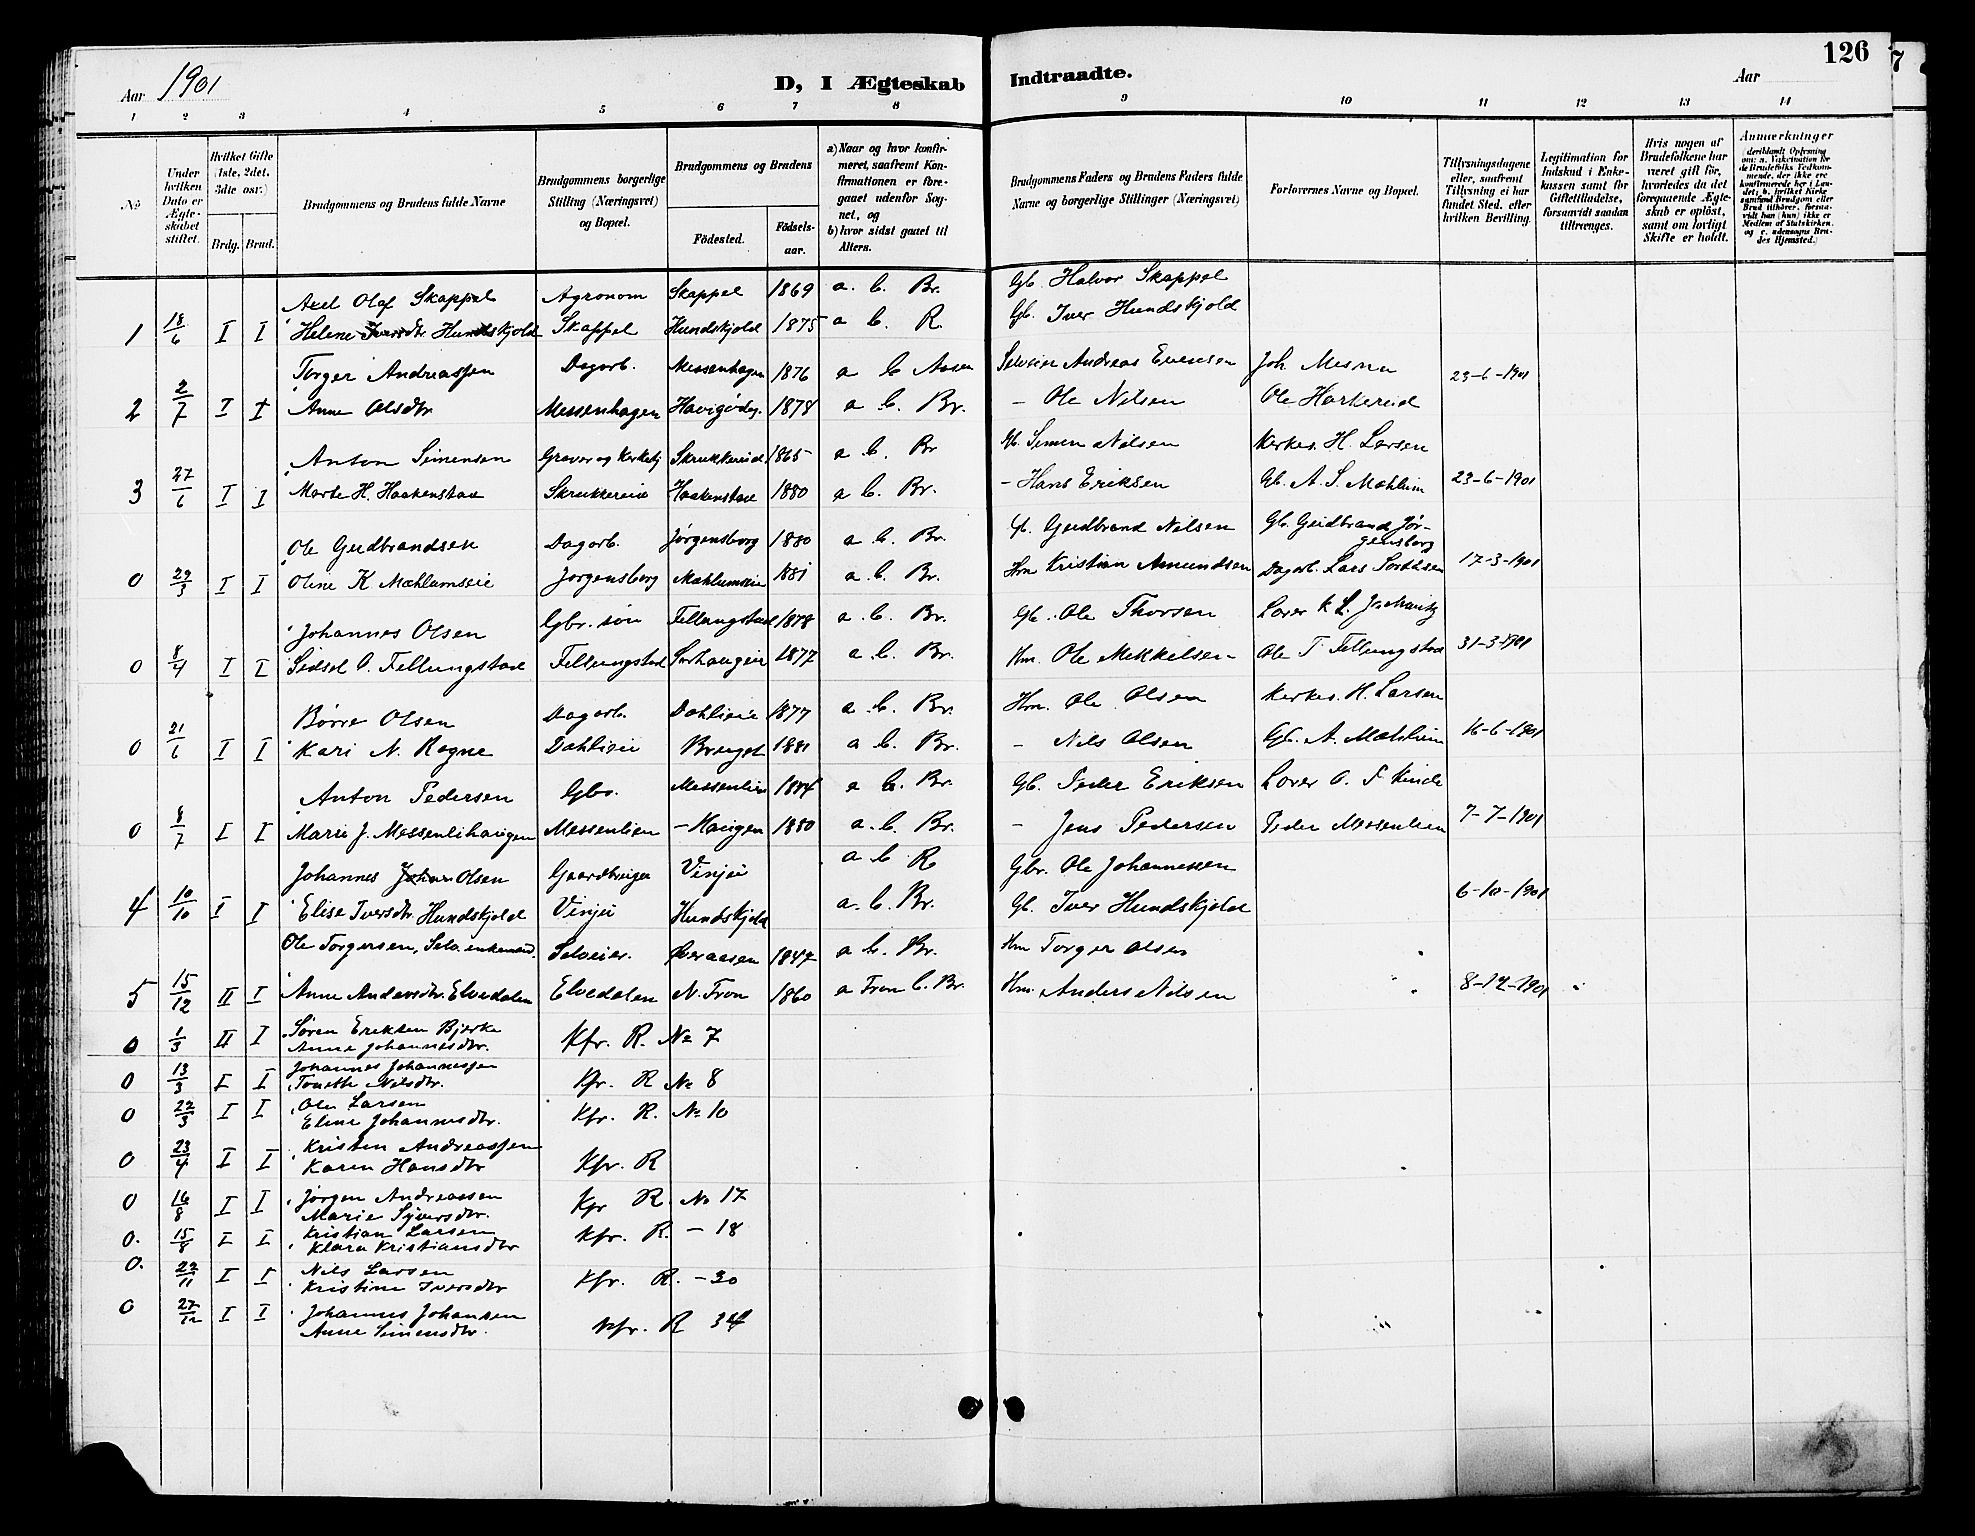 Aar 1901
D, I Ægteskab Indtraadte.
Aar
126
1 2 3 4 5 6 7 8 9 10 11 12 13 14
No
Under hvilken Dato er Ægteskabet stiftet.
Hvilket Gifte (1ste, 2det, 3die osv.)
Brdg. Brud.
Brudgommens og Brudens fulde Navne
Brudgommens borgerlige Stilling (Næringsvei) og Bopæl.
Brudgommens og Brudens
Fødested.
Fødselsaar.
a) Naar og hvor konfirmeret, saafremt Konfirmationen er foregaaet udenfor Sognet, og
b) hvor sidst gaaet til Alters.
Brudgommens Faders og Brudens Faders fulde Navne og borgerlige Stillinger (Næringsvei)
Forlovernes Navne og Bopæl.
Tillysningsdagene eller, saafremt Tillysning ei har fundet Sted, efter hvilken Bevilling.
Legitimation for Indskud i Enkekassen samt for Giftetilladelse, forsaavidt saadan tiltrænges.
Hvis nogen af Brudefolkene har været gift før, hvorledes da det foregaaende Ægteskab er opløst, samt om lovligt Skifte er holdt.
Anmærkninger
Axel Olaf Skappel Agronom Skappel 1869 a. b. Br. Gb. Halvor Skappel
1 18/6 I I Helene Iversdtr Hundskjold Skappel Hundskjold 1875 a b. R Gb. Iver Hundskjold
Torger Andreassen Dagarb. Messenhagen 1876 a b Aasen Selveier Andreas Evensen Joh. Mesna
2 2/7 I I Anne Olsdtr Messenhagen 1878 a b. Br. – Ole Nilsen Ole Harkereid 23-6-1901
Anton Simensen Graver og Skrukkereie 1865 a b. Br Gb. Simen Nilsen Kirkes. H. Larsen
3 27/6 I I Marte H. Haakenstad Skrukkereie Haakenstad 1880 a b. Br. – Hans Eriksen Gb. A. S. Mæhlum 23-6-1901
Ole Gudbrandsen Dagarb. Jørgensborg 1880 a b. Br. Gb. Gudbrand Nilsen Gb. Gudbrand Jørgensborg
0 29/3 I I Oline K Mæhlumseie Jørgensborg Mæhlumseie 1881 a. b. Br. Hm Kristian Amundsen Dagarb. Lars 17-3-1901
Johannes Olsen Gbr. søn Fellungstad 1878 a b. Br. Gb. Ole Thorsen Lærer K L.
0 8/4 I I Sidsel O. Fellungstad Fellungstad 1877 a b. Br. Hm. Ole Mikkelsen Ole T Fellungstad 31-3-1901
Børre Olsen Dagarb. Dahlseie 1877 a b. Br. Hm. Ole Olsen Kirkes. H. Larsen
0 21/6 I I Kari N. Rogne Dahlseie 1881 a b. Br. – Nils Olsen Gb. A. Mæhlum 16-6-1901
Anton Pedersen Gbs. Messenlien 1874 a b. Br Gb. Peder Eriksen Lærer O. F Kinde
0 8/7 I I Marie J. Messenlihaugen Messenlien – Haugen 1880 a. b. Br. – Jens Pedersen Peder Messenlien 7-7-1901
Johannes Olsen Gaardbruger a b R Gbr. Ole Johannessen
4 10/10 I I Elise Iversdtr Hundskjold Hundskjold a. b. Br. Gb. Iver Hundskjold 6-10-1901
Ole Torgersen, Selv. enkemand. Selveier. Øveraasen 1847 a b. Br. Hm Torger Olsen
5 15/12 II I Anne Andersdtr. Elvedalen Elvedalen N. Fron 1860 a Fron b. Br. Hm. Anders Nilsen 8-12-1901
0 1/3 II I Søren Eriksen Bjerke
Anne Johannesdtr. Kfr. R. No 7
0 13/3 I I Johannes Johannessen
Tonette Nilsdtr. Kfr. R No 8
0 22/3 I I Ole Larsen
Eline Johannesdtr. Kfr. R. No 10
0 23/4 I I Kristen Andreassen
Karen Hansdtr Kfr. R
0 16/8 I I Jørgen Andreassen
Marie Syversdtr. Kfr R. No 17
0. 15/8 I I Kristian Larsen
Klara Kristiansdtr Kfr. R. – 18
0. 22/11 I I Nils Larsen
Kristine Iversdtr Kfr. R. – 30
0 27/12 I I Johannes Johansen
Anne Simensdtr. Kfr. R 34